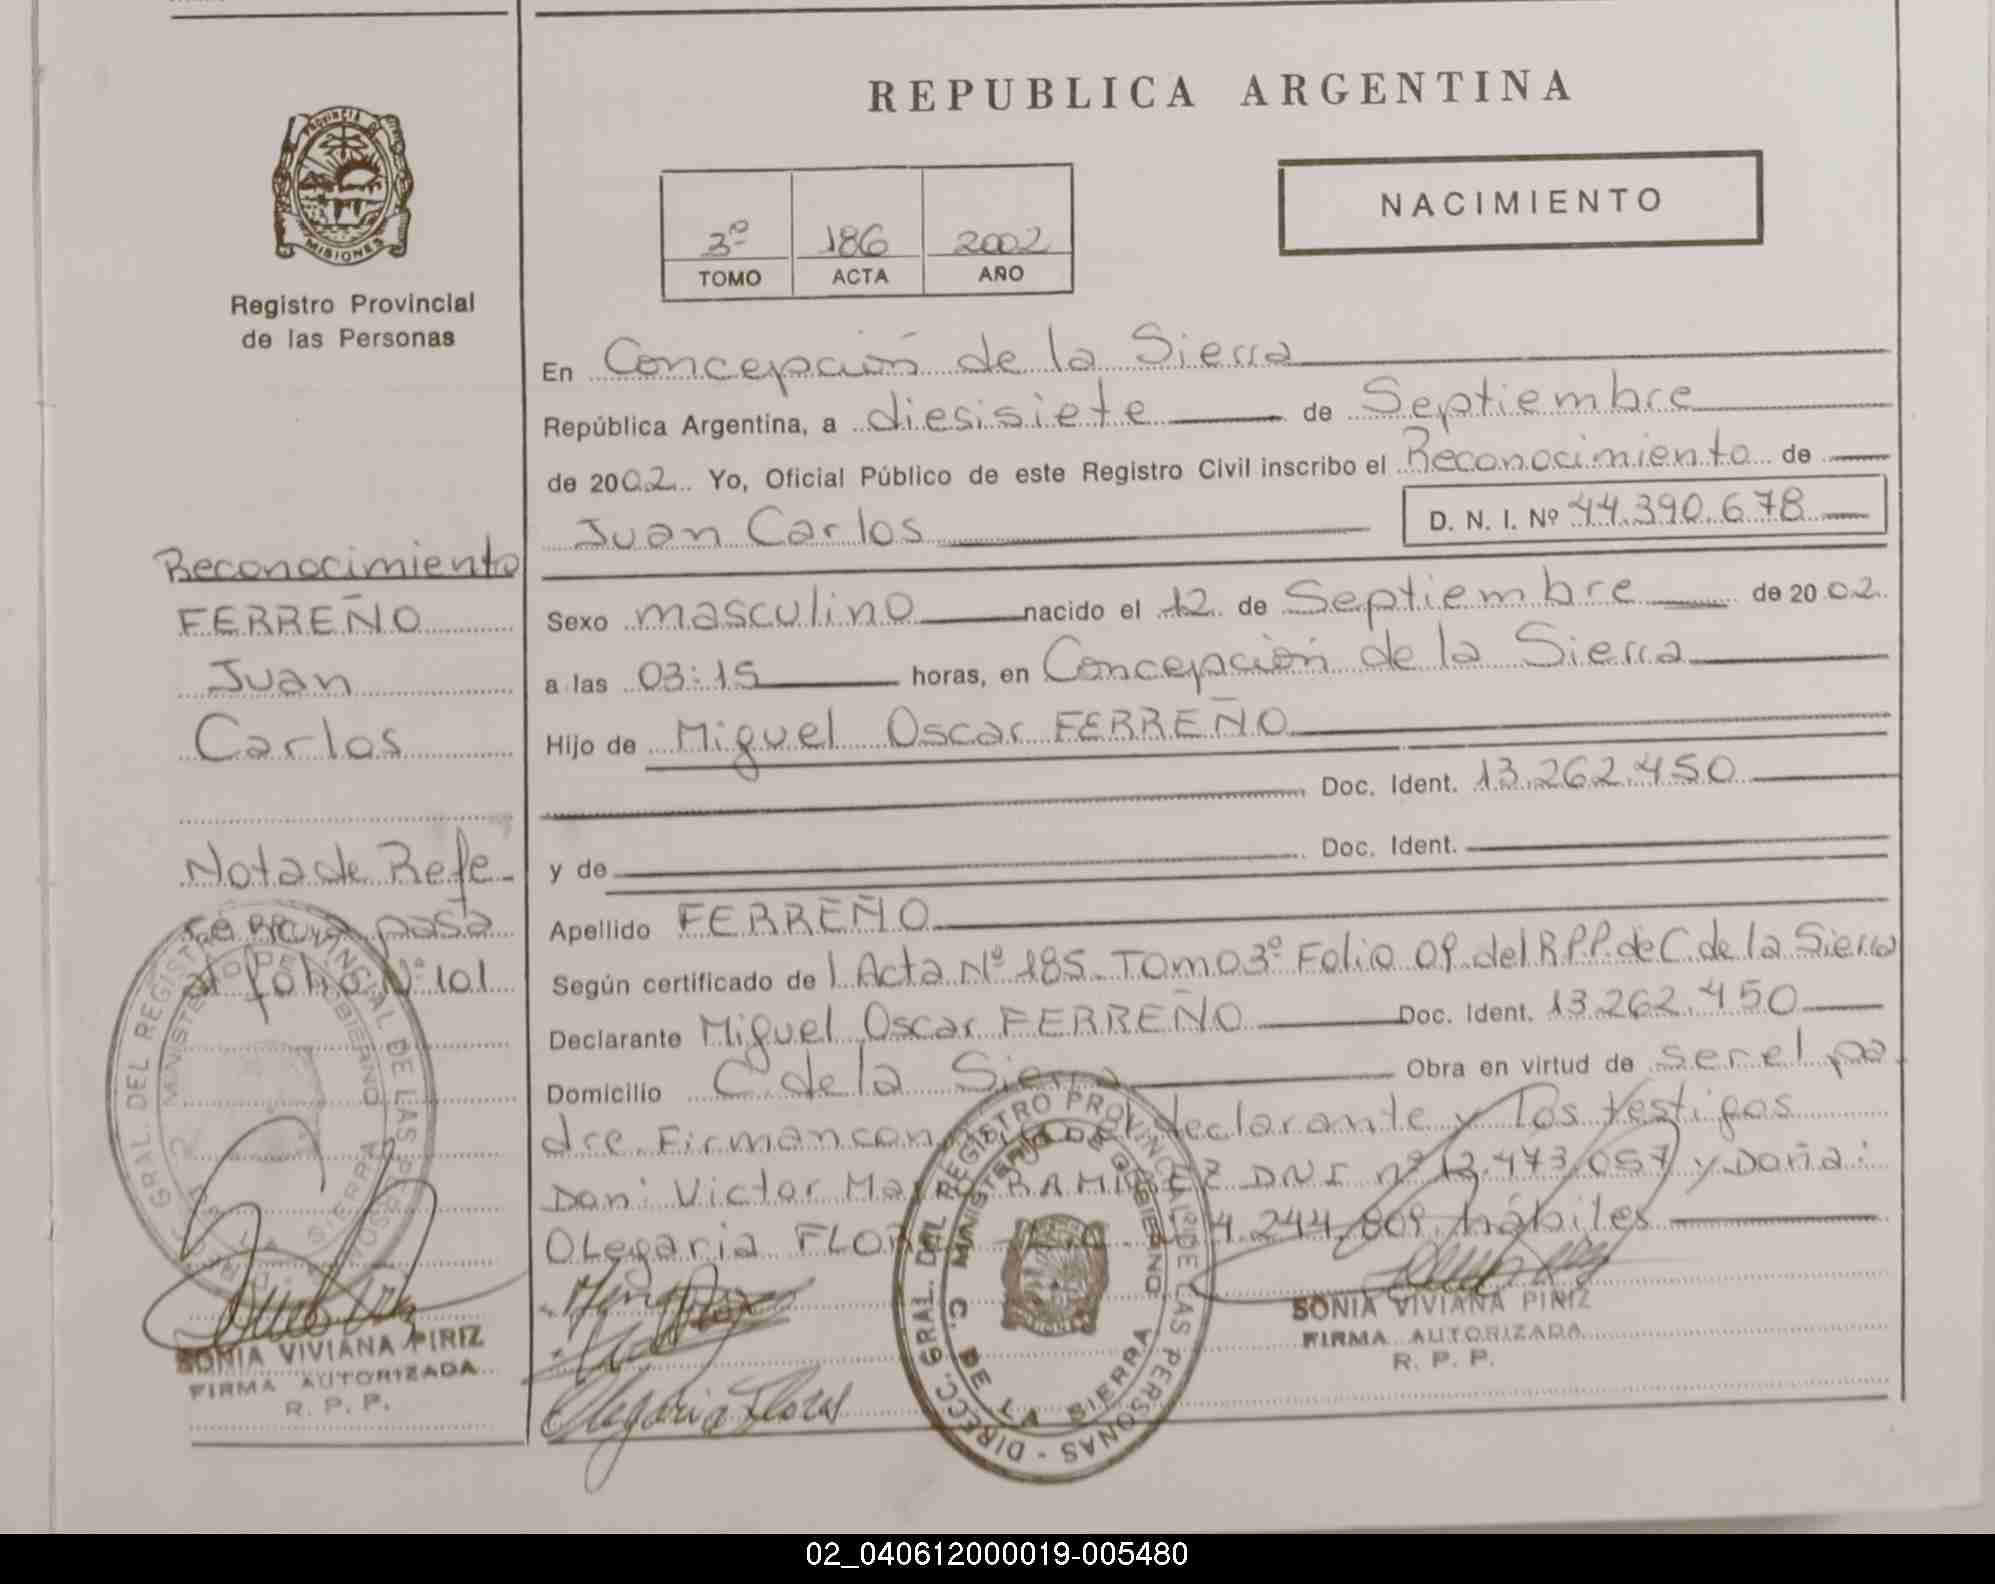 REPUBLICA ARGENTINA
PROVINCIA DE
MISIONES
Registro Provincial
de las Personas
NACIMIENTO
3º 186 2002
TOMO ACTA AÑO
En Concepción de la Sierra
República Argentina, a diesisiete de Septiembre
de 2002 Yo, Oficial Público de este Registro Civil inscribo el Reconocimiento de
Juan Carlos D. N. I. Nº 44.390.678
Sexo masculino nacido el 12 de Septiembre de 2002
a las 03:15 horas, en Concepción de la Sierra
Hijo de Miguel Oscar FERREÑO
Doc. Ident. 13.262.450
y de Doc. Ident.
Apellido FERREÑO
Según certificado de l Acta Nº 185 Tomo 3º Folio 09 del R.P.P. de C. de la Sierra
Declarante Miguel Oscar FERREÑO Doc. Ident. 13.262.450
Domicilio C de la Sierra Obra en virtud de ser el pa
dre. Firman con declarante y los testigos
Don: Victor RAMIREZ DNI nº 12.473.057 y Doña:
Olegaria 4.244.809 hábiles
Olegaria Flores
DIREC. GRAL. DEL REGISTRO PROVINCIAL DE LAS PERSONAS
MINISTERIO DE GOBIERNO
C. DE LA SIERRA
SONIA VIVIANA PIRIZ
FIRMA AUTORIZADA
R. P. P.
Reconocimiento
FERREÑO
Juan
Carlos
Nota de Refe-
rencia pasa
al folio Nº 101
DIREC. GRAL. DEL REGISTRO PROVINCIAL DE LAS PERSONAS
MINISTERIO DE GOBIERNO
C. DE LA SIERRA
SONIA VIVIANA PIRIZ
FIRMA AUTORIZADA
R. P. P.
02_040612000019-005480